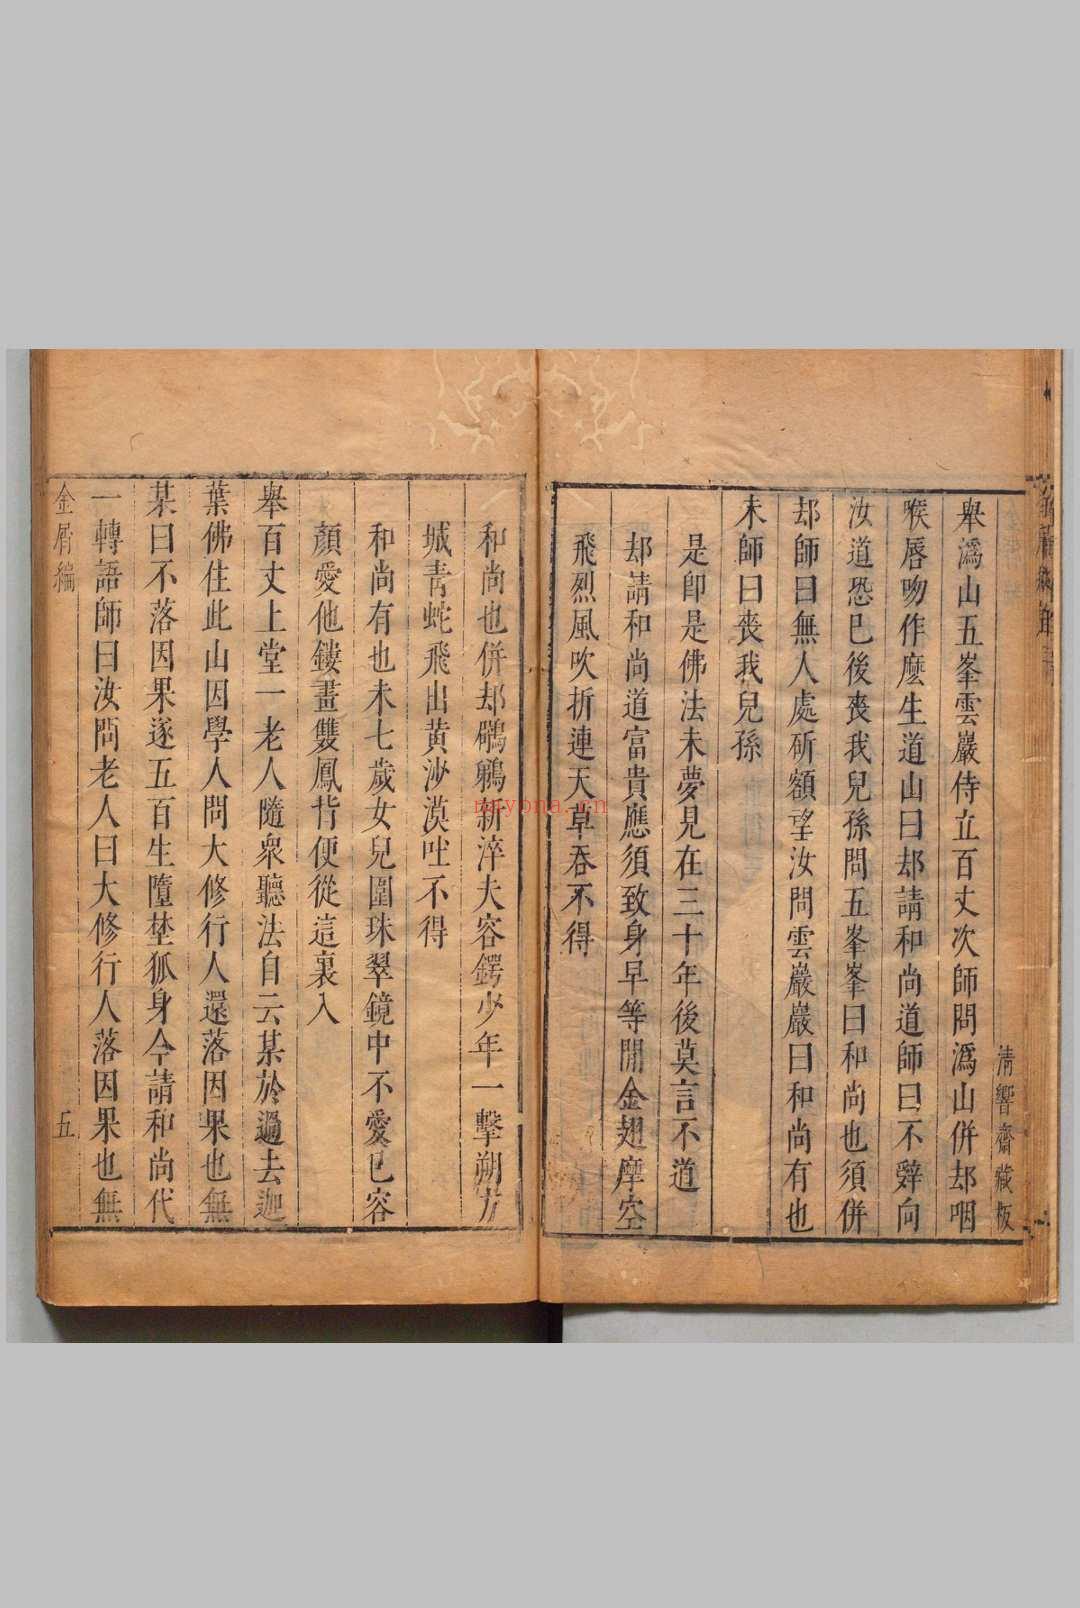 清響齋藏板
舉溈山五峯雲巖侍立百丈次師問溈山併却咽
喉唇吻作麼生道山曰却請和尚道師曰不辭向
汝道恐已後喪我兒孫問五峯峯曰和尚也須併
却師曰無人處斫額望汝問雲巖巖曰和尚有也
未師曰喪我兒孫
是卽是佛法未夢見在三十年後莫言不道
却請和尚道富貴應須致身早等閒金翅摩空
飛烈風吹折連天草吞不得
和尚也併却鸊鵜新淬夫容鍔少年一擊朔方
城青蛇飛出黄沙漠吐不得
和尚有也未七歲女兒圍珠翠鏡中不愛已容
顏愛他鏤畫雙鳳背便從這裏入
舉百丈上堂一老人隨衆聽法自云某於過去迦
葉佛住此山因學人問大修行人還落因果也無
某曰不落因果遂五百生墮埜狐身今請和尚代
一轉語師曰汝問老人曰大修行人落因果也無
金屑編
五
nayona.cn